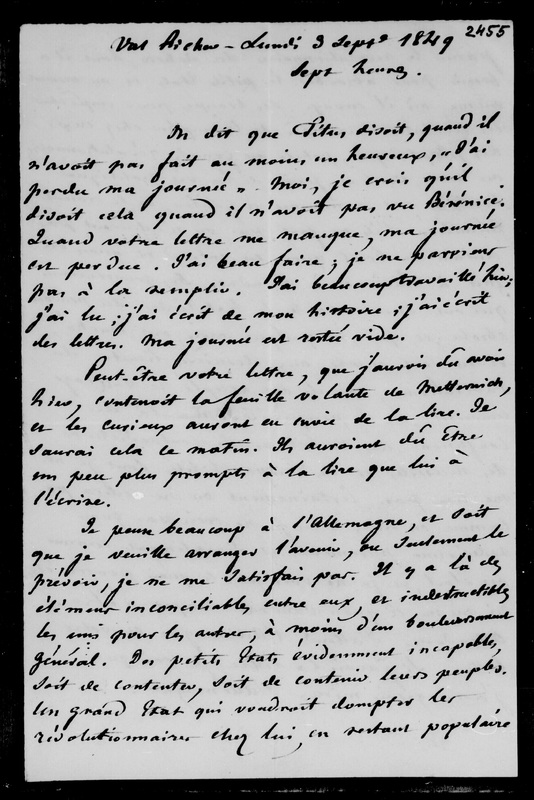 2455
Val Richer - Lundi 3 Septe 1849
Sept heures.
On dit que Titus disoit, quand il
n'avoit pas fait au moins un heureux, "J'ai
perdu ma journée". Moi, je crois qu'il
disoit cela quand il n'avoit pas vu Bérénice.
Quand votre lettre me manque, ma journée
est perdue. J'ai beau faire ; je ne parviens
pas à la remplir. J'ai beaucoup travaillé hier ;
j'ai lu ; j'ai écrit de mon histoire ; j'ai écrit
des lettres. Ma journée est restée vide.
Peut-être votre lettre, que j'aurois dû avoir
hier, contenoit la feuille volante de Metternich,
et les curieux auront eu envie de la lire. Je
saurai cela ce matin. Ils auroient dû être
un peu plus prompts à la lire que lui à
l'écrire.
Je pense beaucoup à l'Allemagne, et soit
que je veuille arranger l'avenir, ou seulement le
prévoir, je ne me satisfais pas. Il y a là des
élémens inconciliables entre eux, et indestructibles
les uns pour les autres, à moins d'un bouleversement
général. Des petits Etats évidemment incapables,
soit de contenter, soit de contenir leurs peuples.
Un grand Etat qui voudroit dompter les
révolutionnaires chez lui, en restant populaire